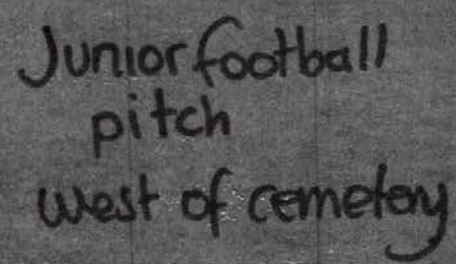 Junior football
pitch
west of cemetery